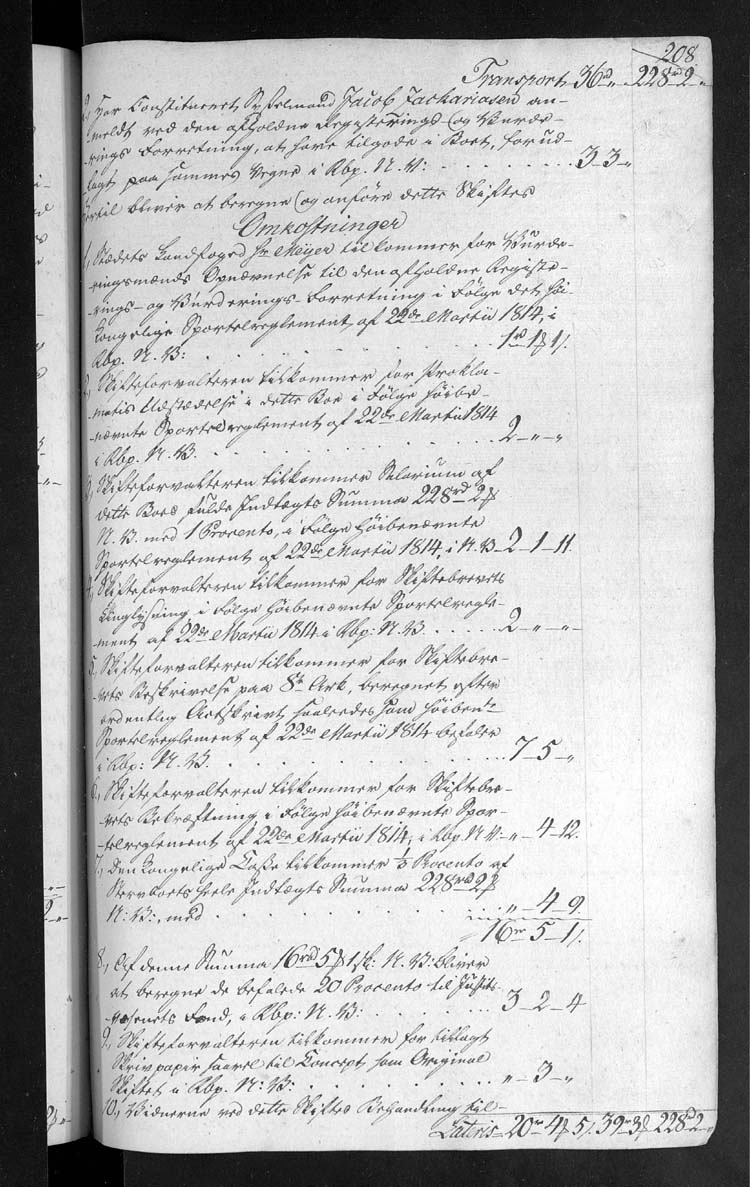 208
Transport 36rd „ 228rd 2 „
2, Har Constitueret Sysselmand Jacob Zachariasen an-
meldt ved den afholdne Registerings- og Vurde-
rings Forretning, at have tilgode i Boet, forud-
lagt paa sammes Vegne i Rbp. N. V: . . . . . 3 - 3 - „
Hertil bliver at beregne og anføre dette Skiftes
Omkostninger
1, Stædets Landfoged Hr Meyer tilkommer for Vurde-
ringsmænds Opnævnelse til den afholdne Registe-
rings- og Vurderings-Forretning i Følge det høi
Kongelige Sportelreglement af 22de Martii 1814, i
Rbp. N. V: . . . . . 1rd 1 ℔ 1/.
2, Skifteforvalteren tilkommer for Prokla-
matis Udstædelse i dette Boe i Følge høibe-
nævnte Sportelreglement af 22de Martii 1814
i Rbp. N. V. . . . . 2 - „ - „
3, Skifteforvalteren tilkommer Salarium af
dette Boes fulde Indtægts Summa 228rd 2 ℔
N. V. med 1 Procento, i Følge høibenævnte
Sportelreglement af 22de Martii 1814, i N. V. - 2 - 1 - 11
4, Skifteforvalteren tilkommer for Skiftebrevets
Tinglysning i Følge høibenævnte Sportelregle-
ment af 22de Martii 1814 i Rbp: N. V. . . . . 2 - „ - „
5, Skifteforvalteren tilkommer for Skiftebre-
vets Beskrivelse paa 8te Ark, beregnet efter
ordentlig Actskrivt, saaledes som høibente
Sportelreglement af 22de Martii 1814 befaler
i Rbp: N. V. . . . . 7 - 5 - „
6, Skifteforvalteren tilkommer for Skiftebre-
vets Bekræftning i Følge høibenævnte Spor-
telreglement af 22de Martii 1814, i Rbp N V - „ - 4 - 12.
7, Den Kongelige Casse tilkommer Procento af
Stervboets heele Indtægts Summa 228rd 2 ℔
N: V:, med . . . . . „ - 4 - 9.
16rd 5 - 1/.
8, Af denne Summa 16rd 5 ℔ 1 sk: N. V: bliver
at beregne de befalede 20 Procento til Justits-
væsenets Fond, i Rbp: N. V: . . . . . 3 - 2 - 4
9, Skifteforvalteren tilkommer for tillagt
Skrivpapir saavel til Concept som Original
Skiftet i Rbp. N: V: . . . . . „ - 3 - „
10, Vidnerne ved dette Skiftes Behandling til-
Lateris - 20rd 4 ℔ 5/. 39rd 3 ℔ 228rd 2 „